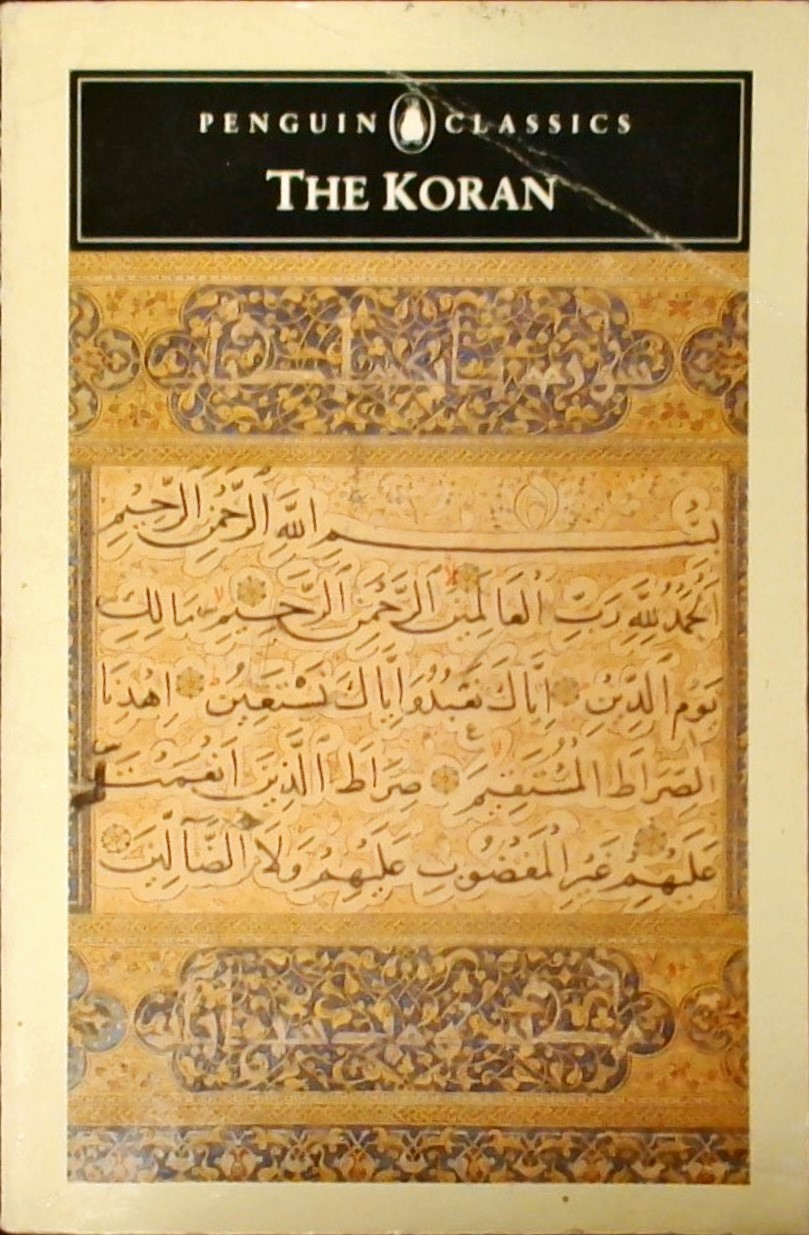 PENGUIN CLASSICS
THE KORAN
بِسْمِ اللَّهِ الرَّحْمَنِ الرَّحِيمِ
اَلْحَمْدُ لِلَّهِ رَبِّ الْعَالَمِينَ الرَّحْمَنِ الرَّحِيمِ مَالِكِ
يَوْمِ الدِّينِ اِيَّاكَ نَعْبُدُ وَاِيَّاكَ نَسْتَعِينُ اِهْدِنَا
الصِّرَاطَ الْمُسْتَقِيمَ صِرَاطَ الَّذِينَ اَنْعَمْتَ
عَلَيْهِمْ غَيْرِ الْمَغْضُوبِ عَلَيْهِمْ وَلَا الضَّآلِّينَ